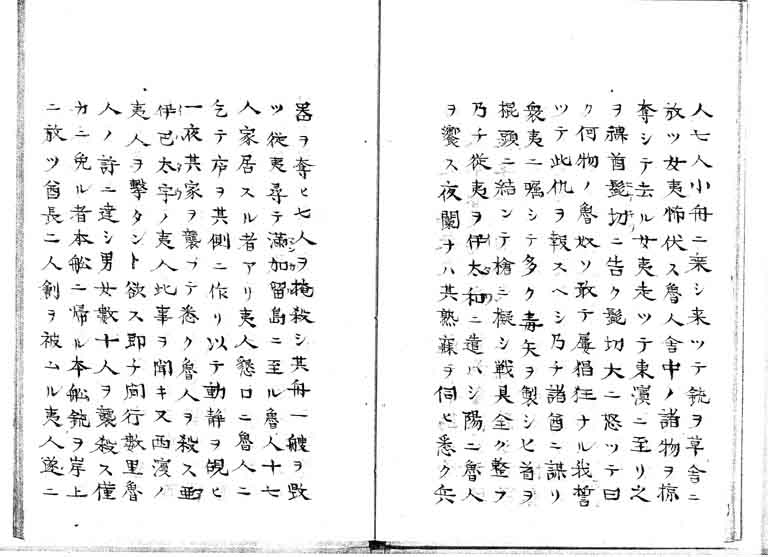 人七人小舟ニ乗シ来ツテ銃ヲ草舎ニ
放ツ女夷怖伏ス魯人舎中ノ諸物ヲ掠
奪シテ去ル女夷走ツテ東濱ニ至リ之
ヲ裸首髭切ニ告ク髭切大ニ怒ツテ曰
ク何物ノ魯奴ソ敢テ屢猖狂ナル我誓
ツテ此仇ヲ報スヘシ乃チ諸酋ニ謀リ
衆夷ニ嘱シテ多ク毒矢ヲ製シヒ首ヲ
棍頭ニ結ンテ槍ニ擬シ戦具全ク整フ
乃チ従夷ヲ伊太和ニ遣ハシ陽ニ魯人
ヲ饗ス夜闌ナハ其熟寐ヲ伺ヒ悉ク兵
器ヲ奪ヒ七人ヲ掩殺シ其舟一艘ヲ毀
ツ従夷尋テ満加留島ニ至ル魯人十七
人家居スル者アリ夷人懇ロニ魯人ニ
乞テ店ヲ其側ニ作リ以テ動静ヲ覘ヒ
一夜其家ヲ襲フテ悉ク魯人ヲ殺ス亜
伊已太字ノ夷人此事ヲ聞キ又西濱ノ
夷人ヲ撃タント欲ス即チ間行数里魯
人ノ許ニ達シ男女數十人ヲ襲殺ス僅
カニ免ル者本舩ニ帰ル本舩銃ヲ岸上
ニ放ツ酋長二人創ヲ被ムル夷人遂ニ